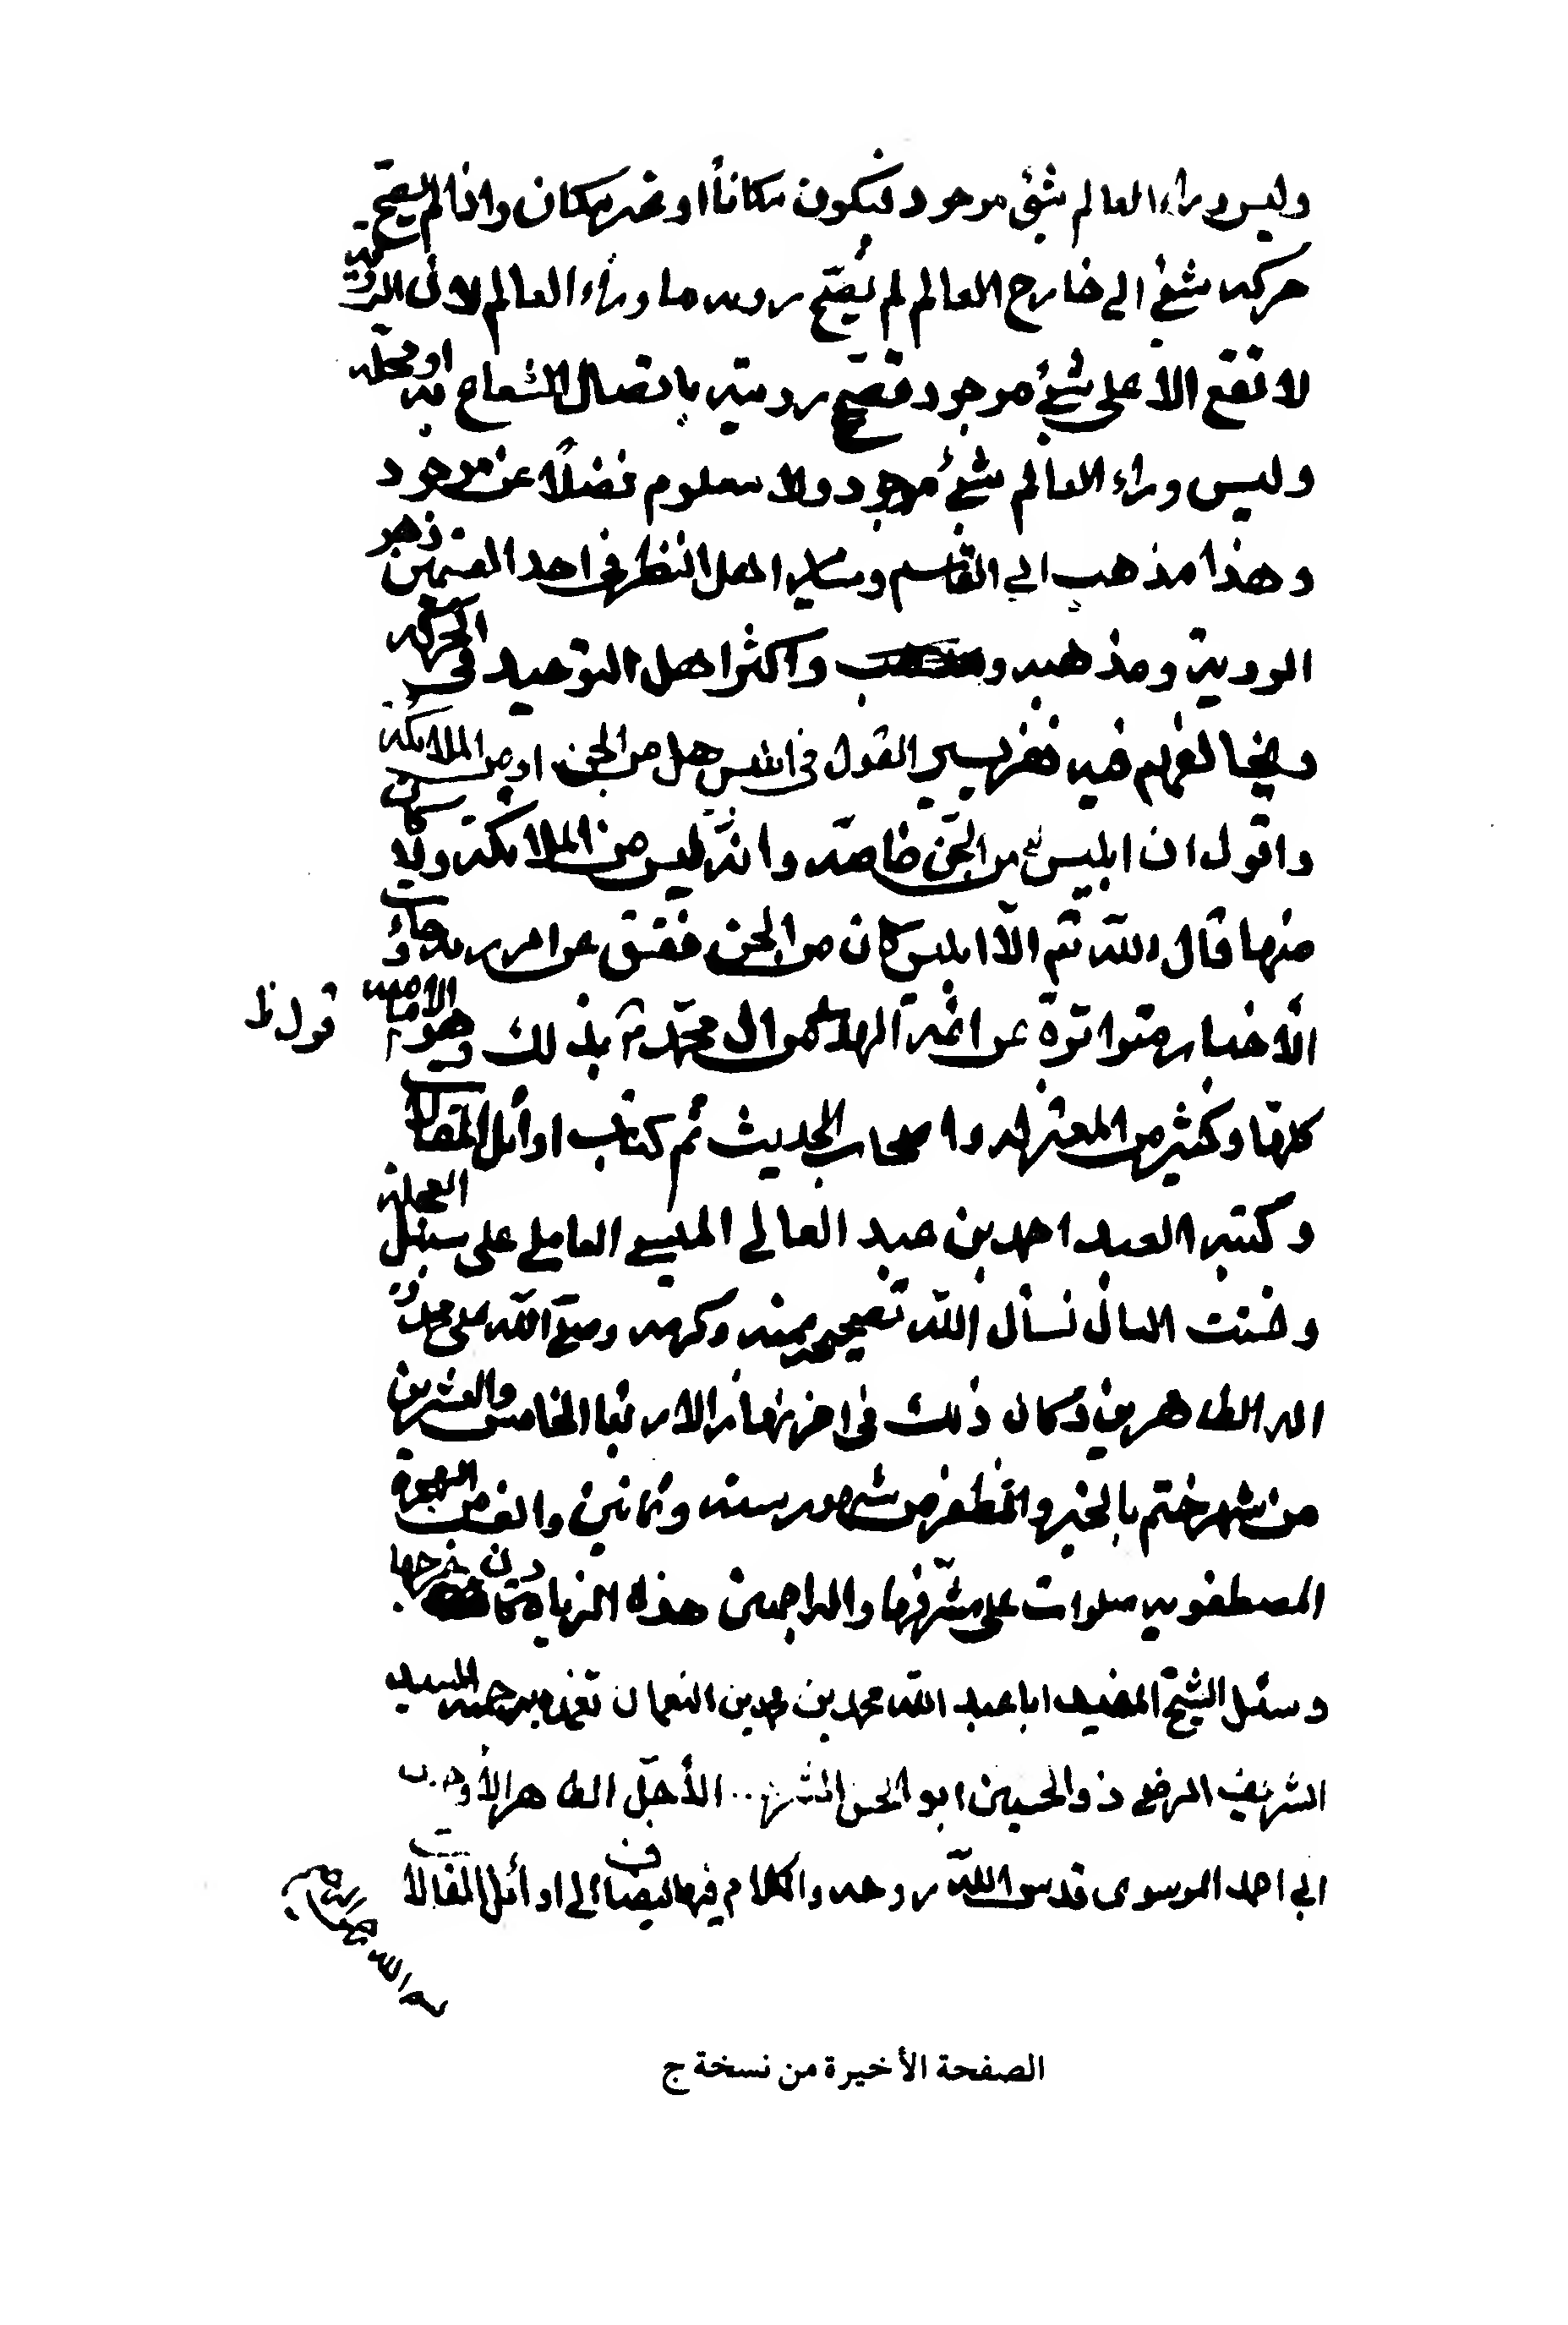 وليس وراء العالم شئ موجود فيكون مكاناً او غير مكان واذا لم يصح
حركة شئ الى خارج العالم لم يصح رؤية ما وراء العالم لان الرؤية
لا تقع الا على شئ موجود تصح رويته باتصال الشعاع به او محله
وليس وراء العالم شئ موجود ولا معلوم فضلاً عن موجود
وهذا مذهب ابي القاسم وساير اهل النظر في احد القسمين
الروية ومذهبه و واكثر اهل التوحيد في الحركة
ويخالفهم فيه نفر يسير القول في ابليس هل من الجن او من الملائكة
واقول ان ابليس من الجن خاصة وانه ليس من الملائكة ولا كان
منها قال الله تع الا ابليس كان من الجن ففسق عن امر ربه وجاءت
الأخبار متواترة عن ائمة الهدى من ال محمد بذلك وهو الامامية
قول ظ
كلها وكثير من المعتزلة واصحاب الحديث تم كتاب اوائل المقالات
وكتبه العبد احمد بن عبد العالي الميسي العاملي على سبيل العجلة
وضيق البال نسأل الله تصحيحه بمنه وكرمه وصلى الله على محمد و
اله الطاهرين وكان ذلك في اخر نهار الاربعا الخامس والعشرين
من شهر ختم بالخير والظفر من شهور سنة وثمانين والف من الهجرة
المصطفويه صلوات على مشرفها والراجعين هذه الزيادة
وسئل الشيخ المفيد ابا عبد الله محمد بن محمد بن النعمان تغمده برحمته السيد
الشريف الرضي ذو الحسبين ابو الحسن الأجل الطاهر الأوحد
ابي احمد الموسوى قدس الله روحه والكلام فيها يضاف الى اوائل المقالات
الصفحة الأخيرة من نسخة ج